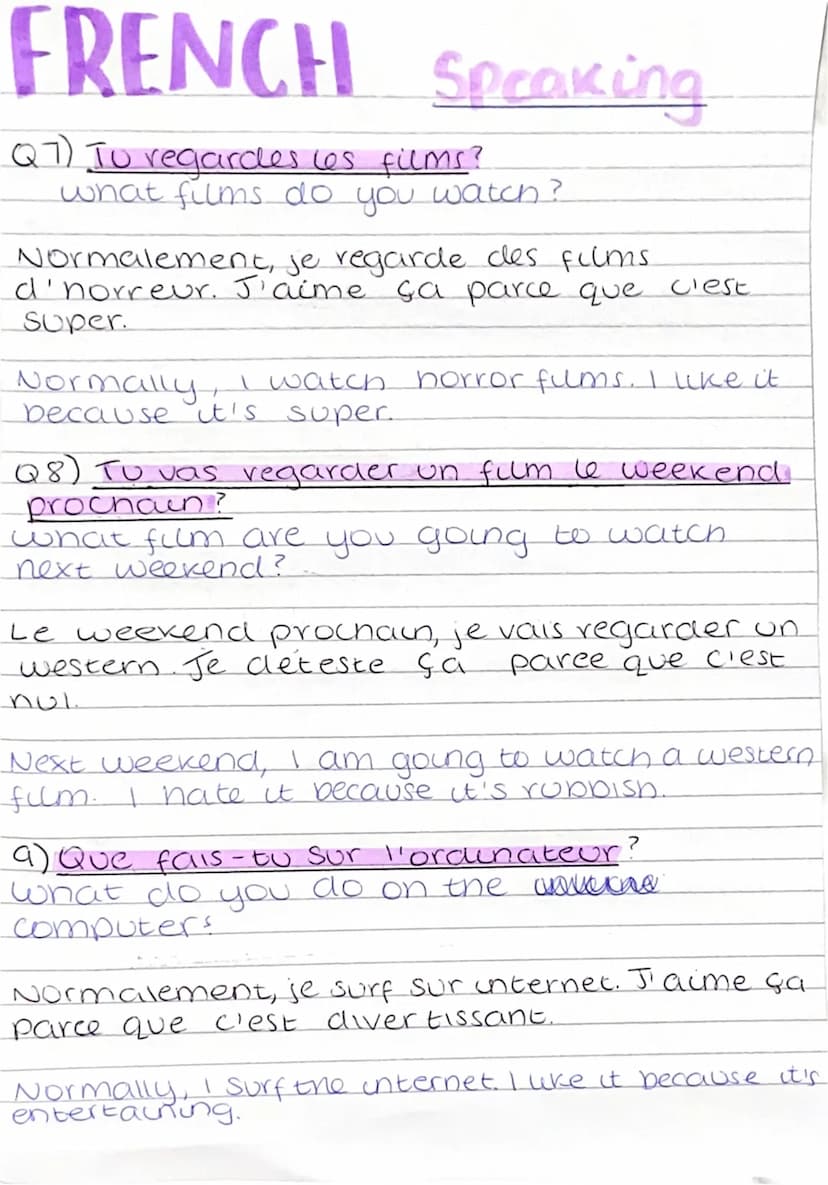 FRENCH Speaking
Q7) Tu regardes les films?
what films do you watch?
Normalement, je regarde des films
d'horreur. J'aime ça parce que c'est
super.
Normally, I watch horror films. I like it
because it's super.
Q8) Tu vas regarder un film le weekend
prochain?
what film are you going to watch
next weekend?
Le weekend prochain, je vais regarder un
western. Je déteste ça parce que c'est
nul.
Next weekend, I am going to watch a western
film. I hate it because it's rubbish.
9) Que fais-tu sur l'ordinateur?
What do you do on the
computer?
Normalement, je surf sur internet. J'aime ça
parce que c'est divertissant.
Normally, I surf the internet. I like it because it's
entertaining.